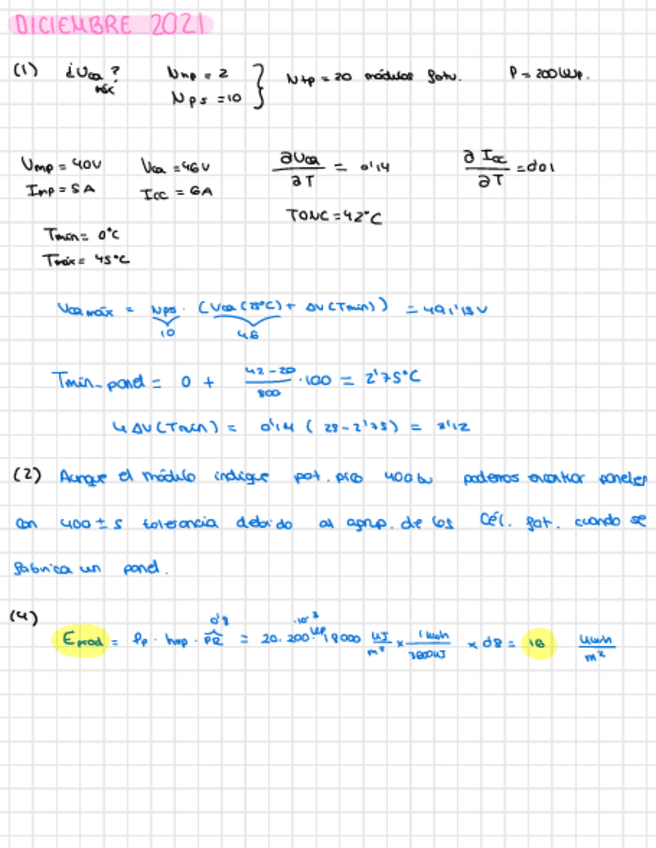 DICIEMBRE 2021
(1) ¿Uca máx? Nmp = 2 Nps = 10 } Ntp = 20 módulos fotv. P = 200 Wp.
Vmp = 40V Vca = 46V ∂Vca/∂T = 0'14 ∂Icc/∂T = 0'01
Imp = 5A Icc = 6A
TONC = 42°C
Tmín = 0°C
Tmáx = 45°C
Vca máx = Nps · (Vca (25°C) + ΔV(Tmín)) = 491'18V
10 46
Tmín-panel = 0 + 42-20/800 · 100 = 2'75°C
ΔV(Tmín) = 0'14 (25-2'75) = 3'12
(2) Aunque el módulo indique pot. pico 400W podemos encontrar paneles
con 400 ± 5 tolerancia debido al agrup. de las cél. fot. cuando se
fabrica un panel.
(4)
0'8 ·10⁻³
Eprod = Pp · hsp · PR = 20. 200 Wp 18000 kJ/m² x 1 kWh/3600kJ x 0'8 = 16 kWh/m²